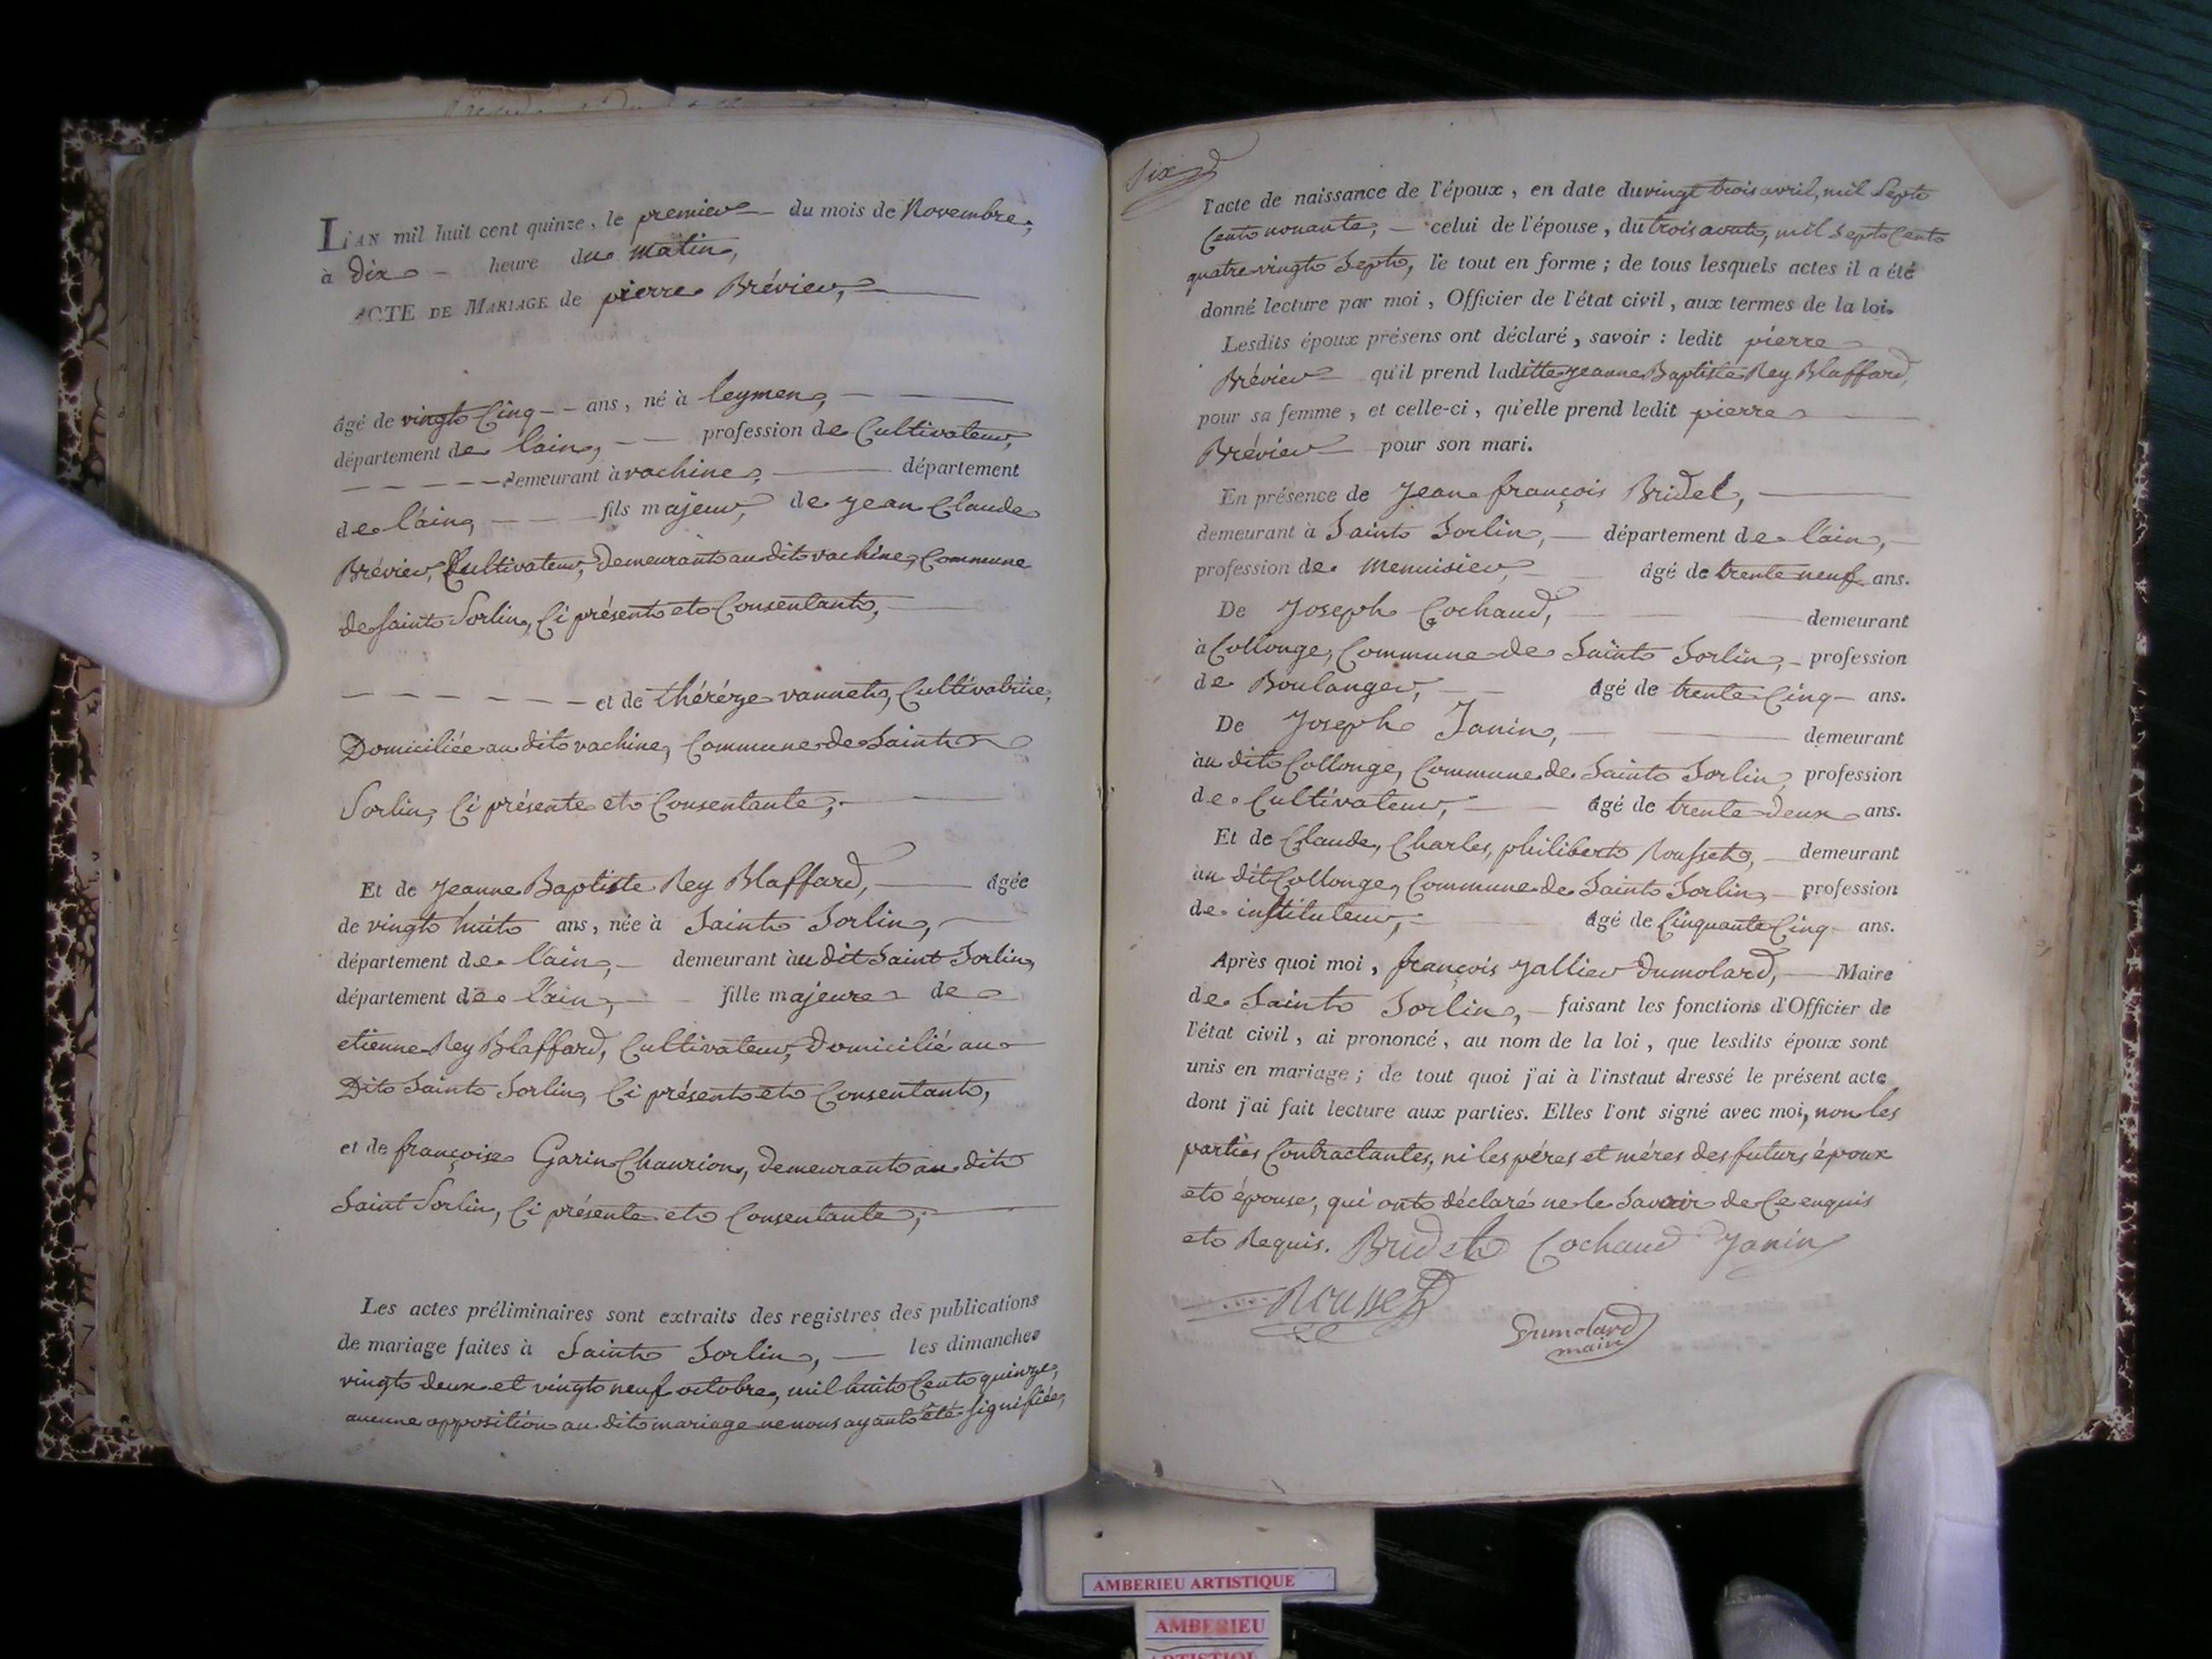 L'AN mil huit cent quinze, le premier - du mois de Novembre,
à dix - heure du matin,
ACTE DE MARIAGE de pierre Brévier,
âgé de vingt Cinq - - ans, né à leymen,
département de lain, - - profession de Cultivateur,
demeurant à vachine, département
de l'ain, fils majeur, de jean Claude
Brévier, Cultivateur, Demeurant au dit vachine, Commune
de saint Sorlin, Ci présent et Consentant,
et de thérèze vannet, Cultivatrice,
Domiciliée au dit vachine, Commune de Saint
Sorlin, Ci présente et Consentante,
Et de jeanne Baptiste Rey Blaffard, âgée
de vingt huit ans, née à Saint Sorlin,
département de l'ain, demeurant au dit Saint Sorlin,
département de l'ain, fille majeure de
etienne Rey Blaffard, Cultivateur, Domicilié au
Dit Saint Sorlin, Ci présent et Consentant,
et de françoise Garin Chaurion, demeurant au dit
Saint Sorlin, Ci présente et Consentante;
Les actes préliminaires sont extraits des registres des publications
de mariage faites à Saint Sorlin, les dimanches
vingt deux et vingt neuf octobre, mil huit Cent quinze,
aucune opposition au dit mariage ne nous ayant été signifiée,
Six
l'acte de naissance de l'époux, en date du vingt trois avril, mil Sept
Cent nonante, - celui de l'épouse, du trois aout, mil Sept Cent
quatre vingt Sept, le tout en forme; de tous lesquels actes il a été
donné lecture par moi, Officier de l'état civil, aux termes de la loi.
Lesdits époux présens ont déclaré, savoir : ledit pierre
Brévier qu'il prend laditte jeanne Baptiste Rey Blaffard,
pour sa femme, et celle-ci, qu'elle prend ledit pierre
Brévier pour son mari.
En présence de Jean françois Bridet,
demeurant à Saint Sorlin, - département de l'ain,
profession de Menuisier, âgé de trente neuf ans.
De Joseph Cochaud, demeurant
à Collonge, Commune de Saint Sorlin, - profession
de Boulanger, âgé de trente Cinq - ans.
De Joseph Janin, demeurant
au dit Collonge, Commune de Saint Sorlin, profession
de Cultivateur, âgé de trente Deux ans.
Et de Claude, Charles, philibert Rousset, demeurant
au dit Collonge, Commune de Saint Sorlin, profession
de instituteur, âgé de Cinquante Cinq ans.
Après quoi moi, françois jallier Dumolard, Maire
de Saint Sorlin, - faisant les fonctions d'Officier de
l'état civil, ai prononcé, au nom de la loi, que lesdits époux sont
unis en mariage; de tout quoi j'ai à l'instaut dressé le présent acte
dont j'ai fait lecture aux parties. Elles l'ont signé avec moi, non les
parties Contractantes, ni les péres et méres des futurs époux
et épouse, qui ont déclaré ne le Savoir de Ce enquis
et Requis. Bridet Cochaud Janin
Rousset
Dumolard
maire
AMBERIEU ARTISTIQUE
AMBERIEU
ARTISTIQUE